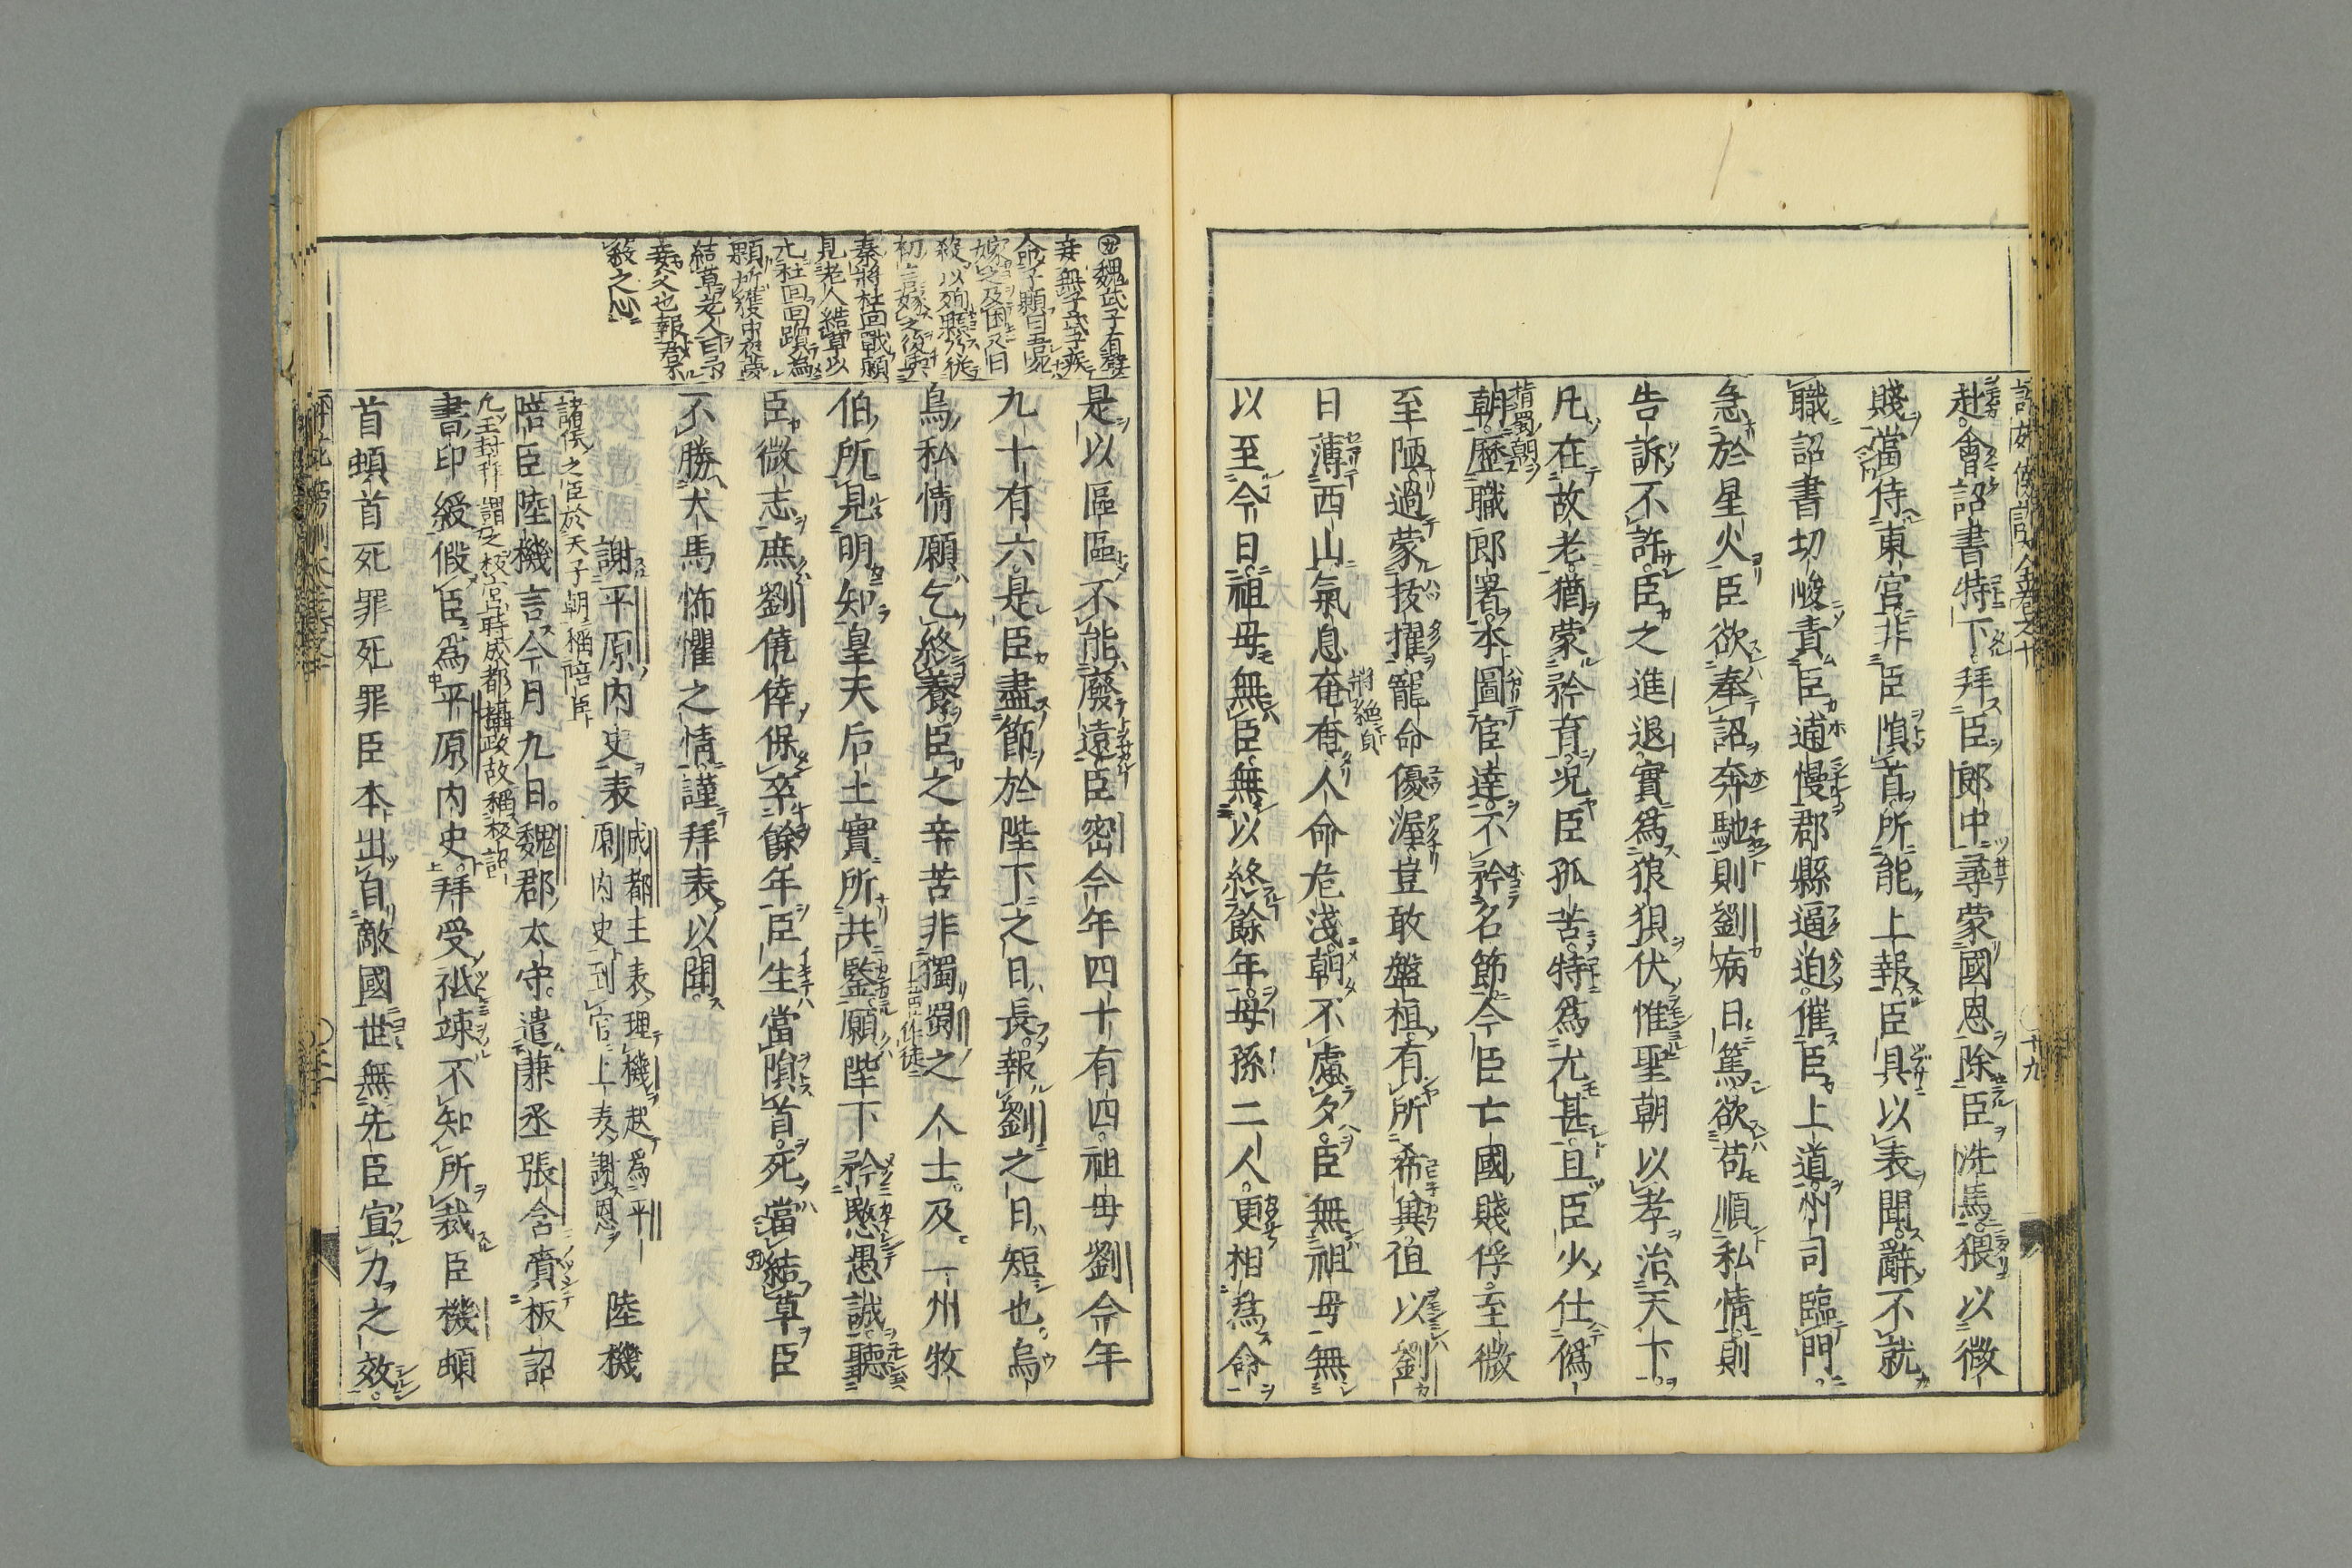 赴會詔書特下拜臣郎中尋蒙國恩除臣洗馬猥以微
賤當侍東宮非臣隕首所能上報臣具以表聞辭不就
職詔書切峻責臣逋慢郡縣逼迫催臣上道州司臨門
急於星火臣欲奉詔奔馳則劉病日篤欲苟順私情則
告訴不許臣之進退實爲狼狽伏惟聖朝以孝治天下
凡在故老猶蒙矜育况臣孤苦特爲尤甚且臣少仕僞
指蜀朝
朝歷職郎署本圖宦達不矜名節今臣亡國賤俘至微
至陋過蒙拔擢寵命優渥豈敢盤桓有所希兾但以劉
日薄西山氣息奄奄人命危淺朝不慮夕臣無祖母無
將絕皃
以至今日祖母無臣無以終餘年母孫二人更相爲命
魏武子有嬖
妾無子武子疾
命子顆曰吾死
嫁之及困又曰
殺以殉顆乃從
初言嫁之後與
秦將杜回戰顆
見老人結草以
亢杜回回躓爲
顆所獲中夜夢
結草老人曰予
妾父也報君不
殺之心
是以區區不能廢遠臣密今年四十有四祖母劉今年
九十有六是臣盡節於陛下之日長報劉之日短也烏
鳥私情願乞終養臣之辛苦非獨蜀之人士及一州牧
伯所見明知皇天后土實所共鑒願陛下矜愍愚誠聽
臣微志庶劉僥倖保卒餘年臣生當隕首死當結草臣
不勝犬馬怖懼之情謹拜表以聞
謝平原内史表 成都王表理機起爲平原内史到官上表謝恩 陸機
諸侯之臣於天子朝稱陪臣
陪臣陸機言今月九日魏郡太守遣兼丞張含齎板詔
凡王封拜謂之板官時成都攝政故稱板詔
書印綬假臣爲平原内史拜受祗竦不知所裁臣機頓
首頓首死罪死罪臣本出自敵國世無先臣宣力之效